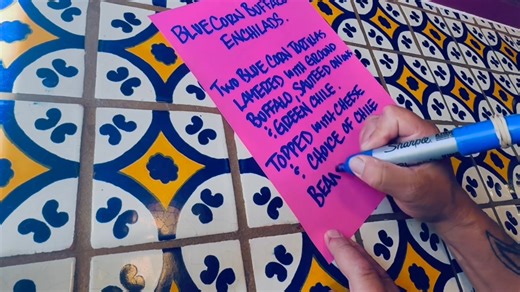 BLUE CORN BUFFALO
ENCHILADS.
TWO BLUE CORN TORTILLAS
LAYERED WITH GROUND
BUFFALO SAUTEED ONION
& GREEN CHILE.
TOPPED WITH CHEESE
& CHOICE OF CHILE
BEAN
Sharpie